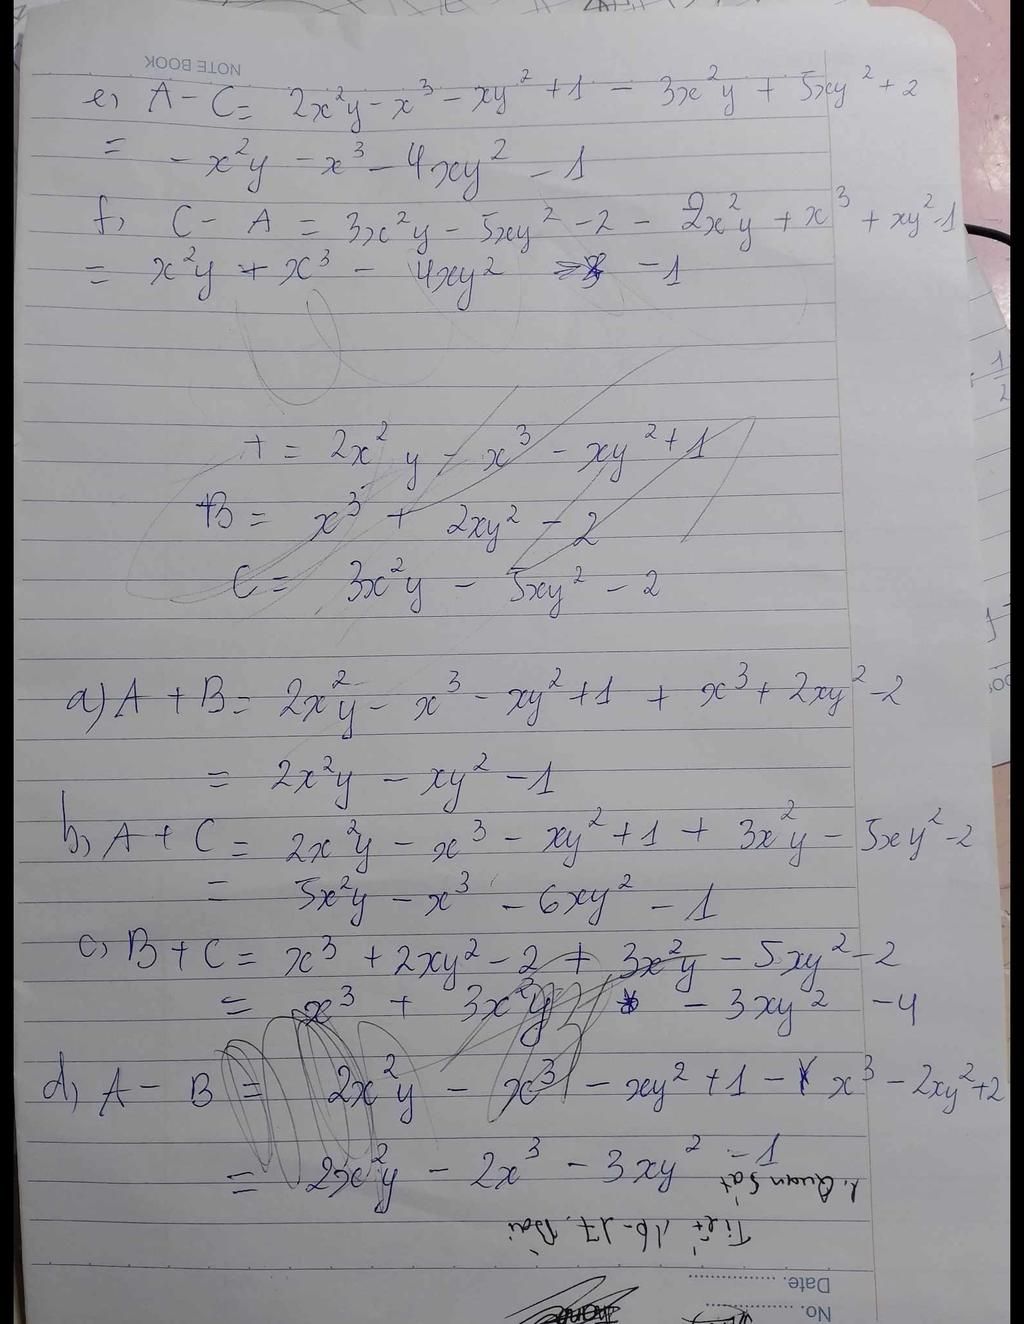 NOTE BOOK
e, A - C = 2x²y - x³ - xy² + 1 - 3x²y + 5xy² + 2
= - x²y - x³ - 4xy² - 1
f, C - A = 3x²y - 5xy² - 2 - 2x²y + x³ + xy² - 1
= x²y + x³ - 4xy² - 1
+ = 2x²y - x³ - xy² + 1
+B = x³ + 2xy² - 2
C = 3x²y - 5xy² - 2
a) A + B = 2x²y - x³ - xy² + 1 + x³ + 2xy² - 2
= 2x²y - xy² - 1
b, A + C = 2x²y - x³ - xy² + 1 + 3x²y - 5xy² - 2
= 5x²y - x³ - 6xy² - 1
c, B + C = x³ + 2xy² - 2 + 3x²y - 5xy² - 2
= x³ + 3x²y - 3xy² - 4
d, A - B = 2x²y - x³ - xy² + 1 - x³ - 2xy² + 2
= 2x²y - 2x³ - 3xy² - 1
1. Quan sát
Tiết 16-17. Bài
Date.
No.